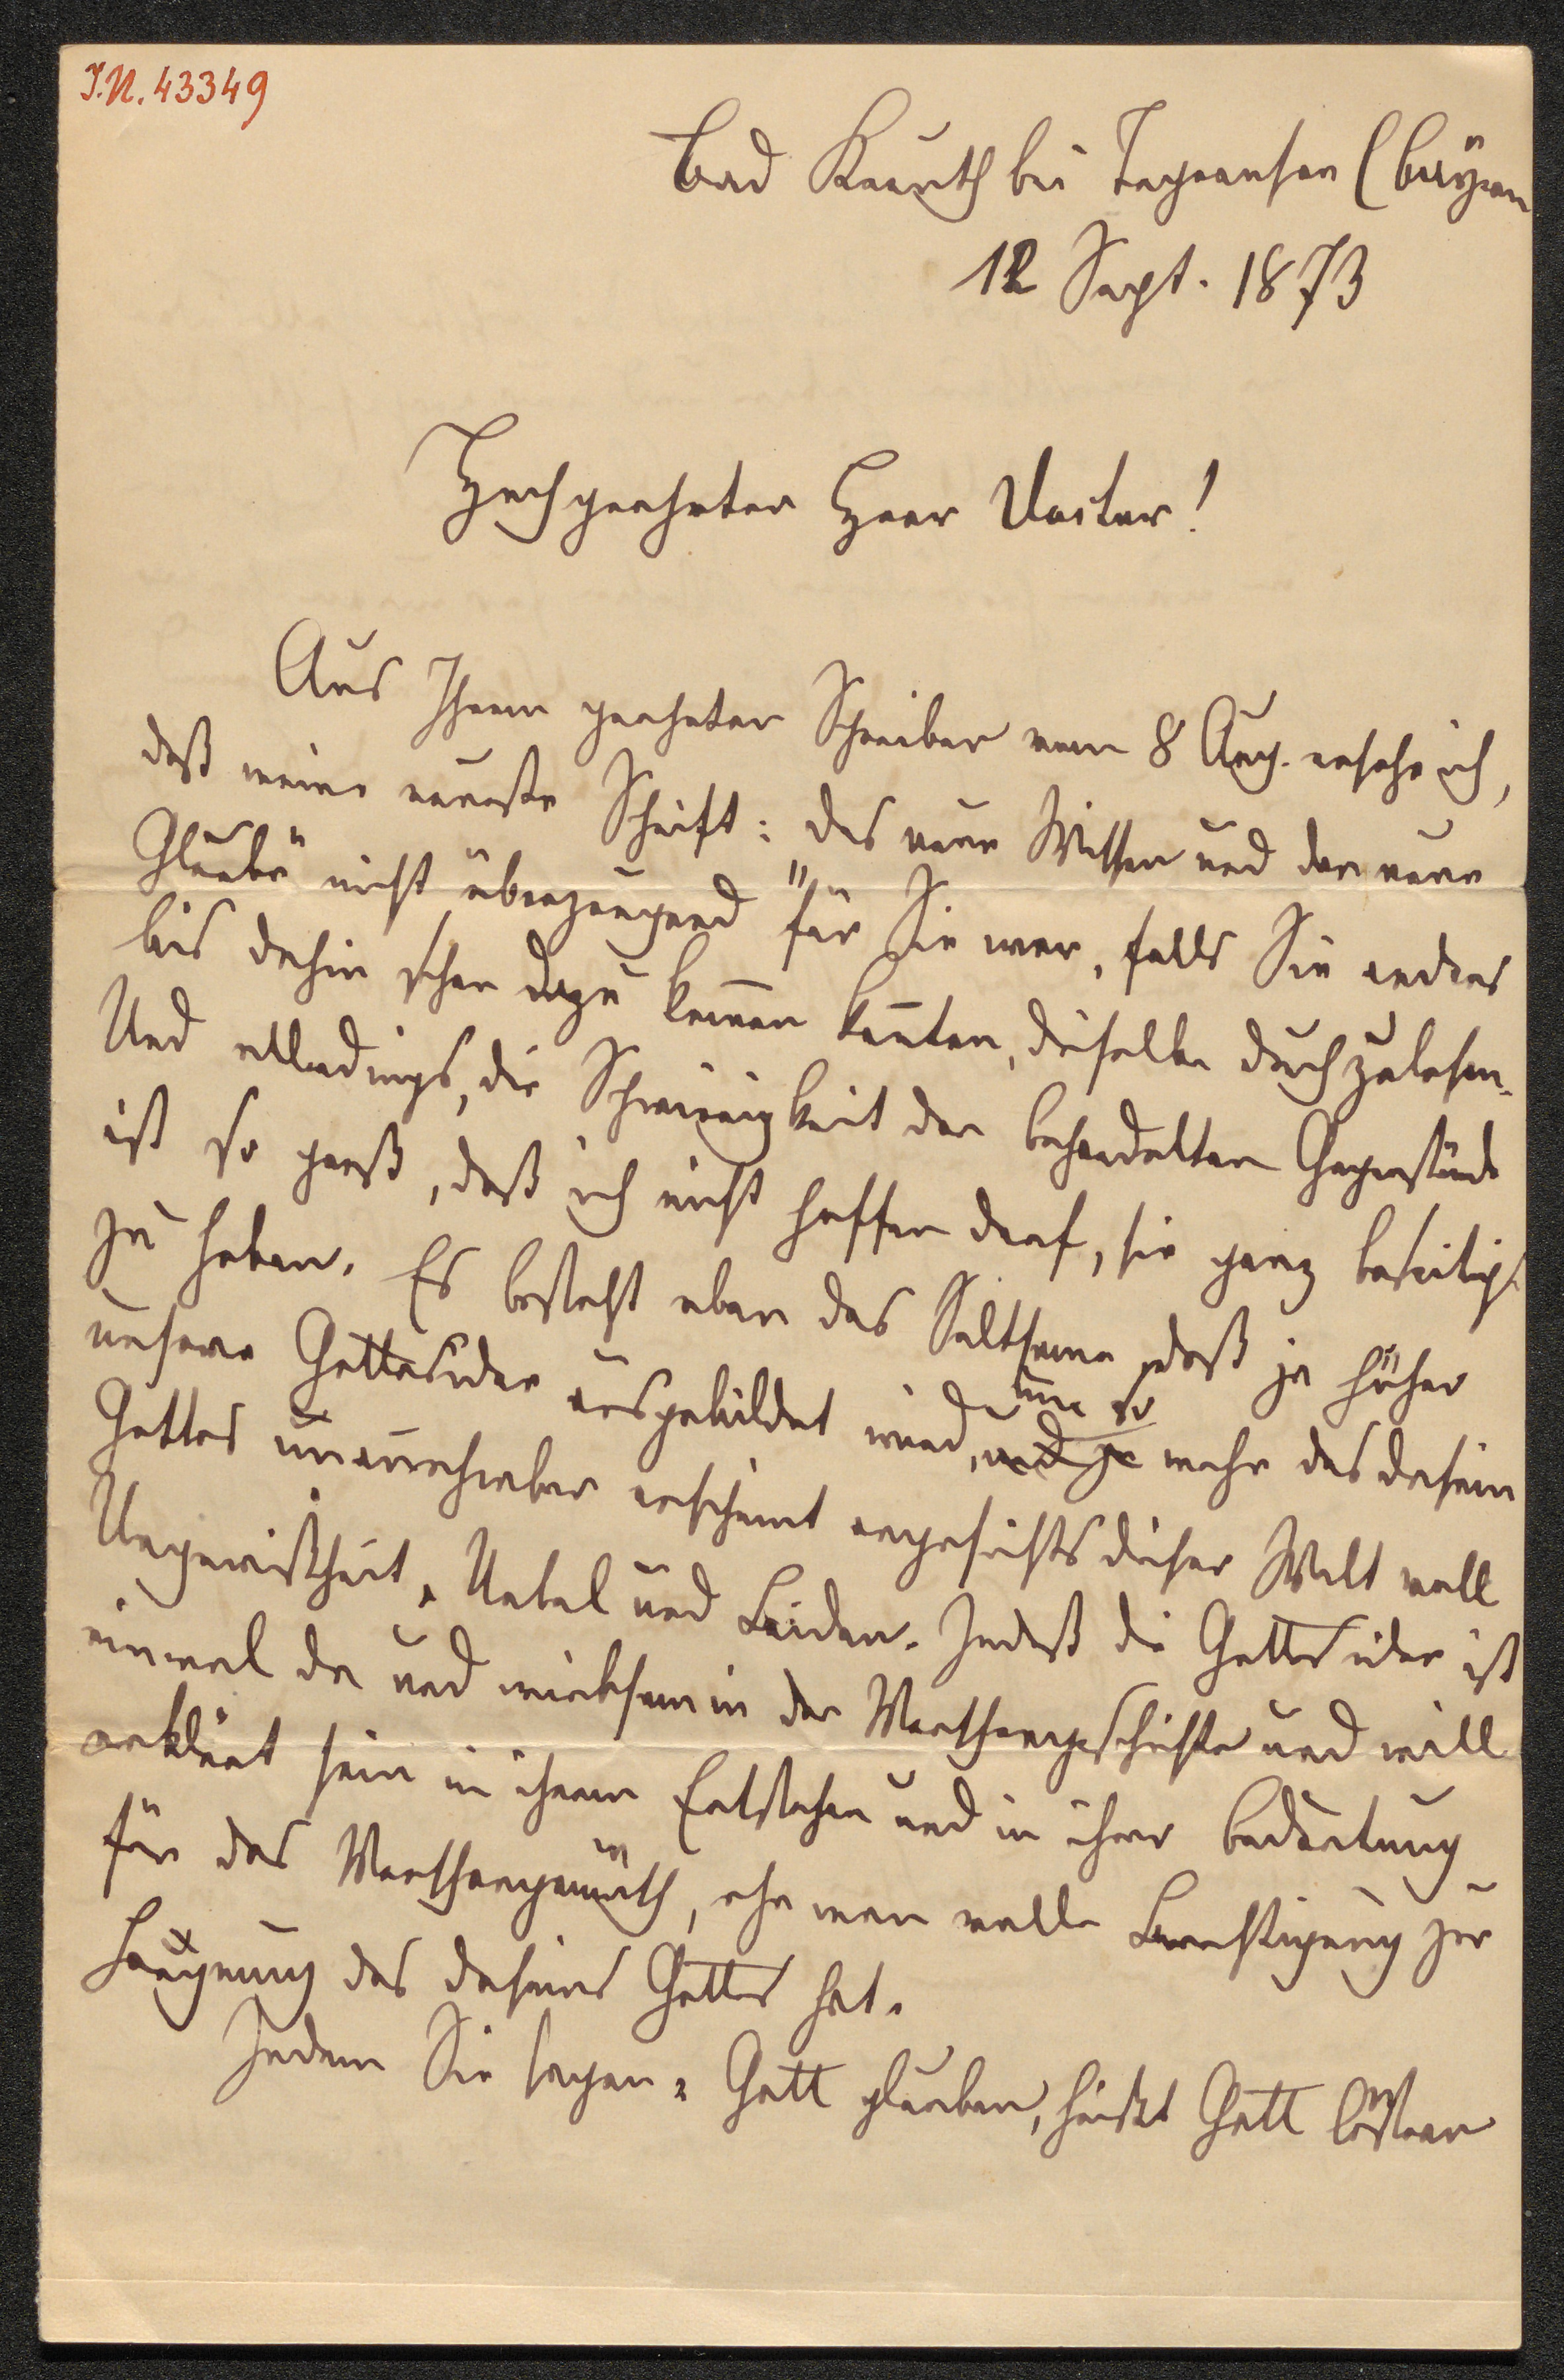 J.N. 43349
Bad Kreuth bei Tegernsee (Bayern
12 Sept. 1873
Hochgeehrter Herr Doctor!
Aus Ihrem geehrten Schreiben vom 8 Aug. ersehe ich,
daß meine neueste Schrift: „das neue Wissen und der neue
Glaube" nicht überzeugend für Sie war, falls Sie anders
bis dahin schon dazu kom̄en kon̄ten, dieselbe durchzulesen.
Und allerdings, die Schwierigkeit der behandelten Gegenstände
ist so groß, daß ich nicht hoffen darf, sie ganz beseitigt
zu haben. Es besteht eben das Seltsame, daß je höher
unsere Gottesidee ausgebildet wird, und je um so mehr das Dasein
Gottes unan̄ehmbar erscheint angesichts dieser Welt voll
Ungewißheit, Uebel und Leiden. Indeß die Gottesidee ist
einmal da und wirksam in der Menschengeschichte und will
erklärt sein in ihrem Entstehen und in ihrer Bedeutung
für das Menschengemüth, ehe man volle Berechtigung zur
Läugnung des Daseins Gottes hat.
Indem Sie sagen: Gott glauben, heißt Gott lästern